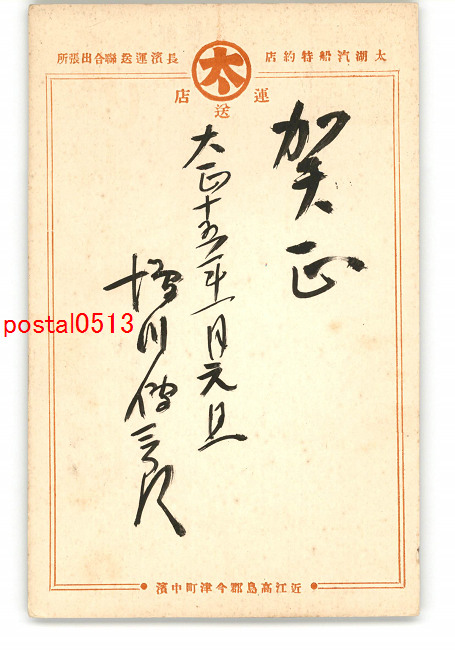 太湖汽船特約店
長濱運送聯合出張所
太
運送店
賀正
大正十五年一月元旦
増川傳三郎
近江高島郡今津町中濱
postal0513